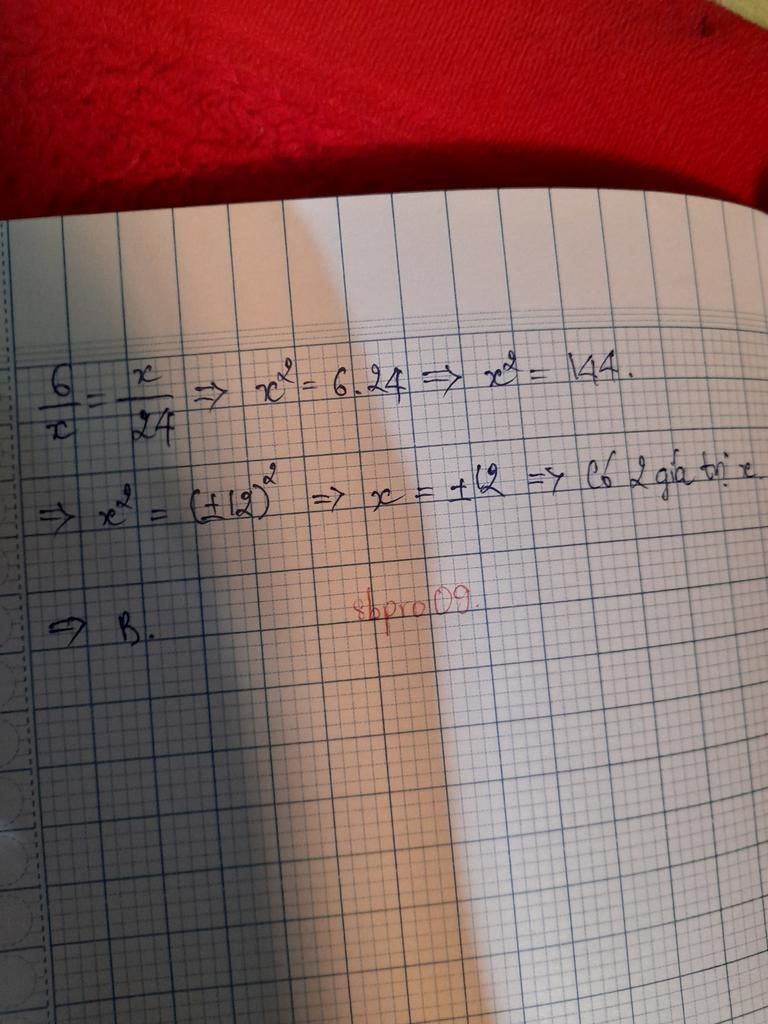 6/x = x/24 => x² = 6.24 => x² = 144.
=> x² = (±12)² => x = ±12 => Có 2 giá trị x
=> B.
sbpro09.